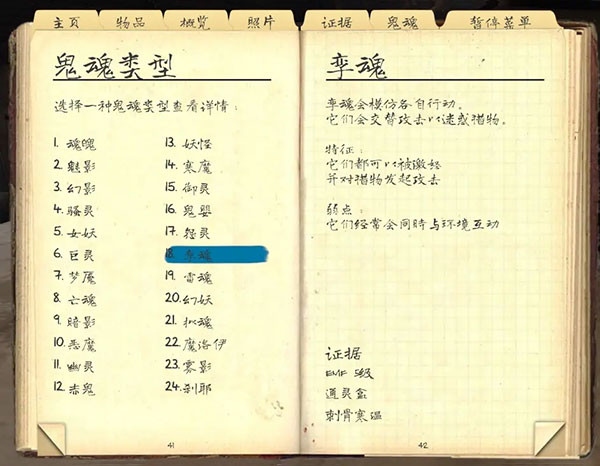 主页 物品 概览 照片 证据 鬼魂 暂停菜单
鬼魂类型
选择一种鬼魂类型查看详情：
1. 魂魄
2. 魅影
3. 幻影
4. 骚灵
5. 女妖
6. 巨灵
7. 梦魇
8. 亡魂
9. 暗影
10. 恶魔
11. 幽灵
12. 赤鬼
13. 妖怪
14. 寒魔
15. 御灵
16. 鬼婴
17. 怨灵
18. 孪魂
19. 雷魂
20. 幻妖
21. 拟魂
22. 魔洛伊
23. 雾影
24. 刹耶
41
孪魂
孪魂会模仿各自行动。
它们会交替攻击以迷惑猎物。
特征：
它们都可以被激怒
并对猎物发起攻击
弱点：
它们经常会同时与环境互动
证据
EMF 5级
通灵盒
刺骨寒温
42